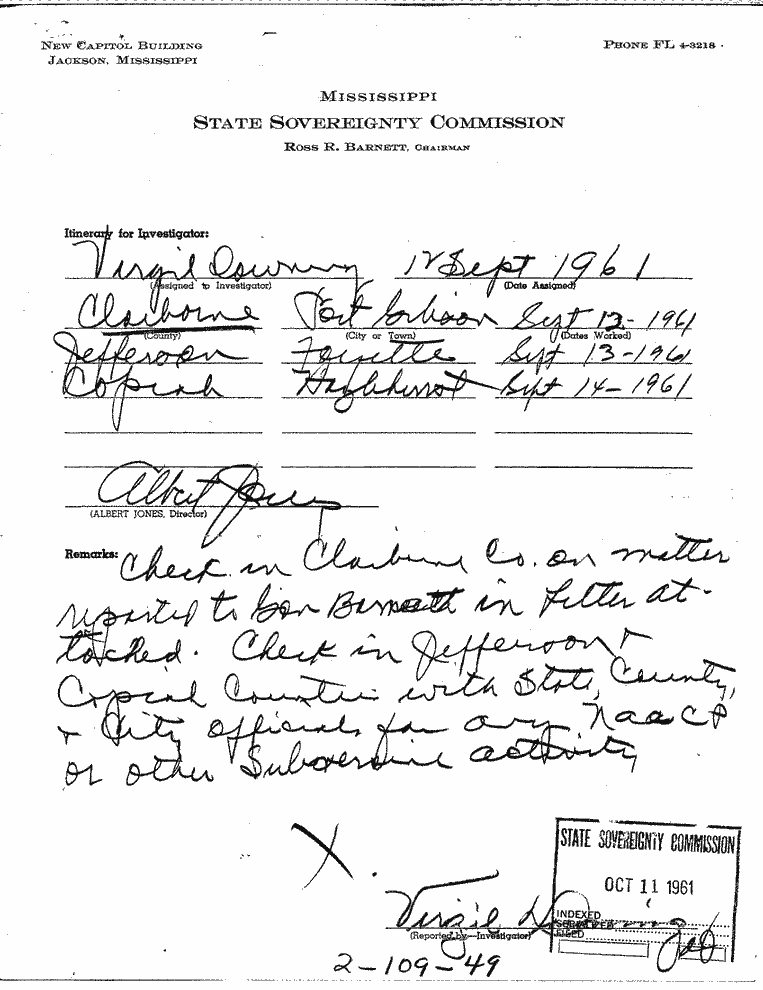 NEW CAPITOL BUILDING
JACKSON, MISSISSIPPI
PHONE FL 4-3218
MISSISSIPPI
STATE SOVEREIGNTY COMMISSION
ROSS R. BARNETT, CHAIRMAN
Itinerary for Investigator:
Virgil Downing 12 Sept 1961
(Assigned to Investigator) (Date Assigned)
Claiborne Port Gibson Sept 12-1961
(County) (City or Town) (Dates Worked)
Jefferson Fayette Sept 13-1961
Copiah Hazlehurst Sept 14-1961
Albert Jones
(ALBERT JONES, Director)
Remarks: Check in Claiborne Co. on matter
reported to Gov Barnett in letter at-
tached. Check in Jefferson &
Copiah Counties with State, County,
& City officials for any NAACP
or other Subversive activity
X
STATE SOVEREIGNTY COMMISSION
OCT 11 1961
INDEXED
FILED
Virgil Downing
(Reported by—Investigator)
2-109-49